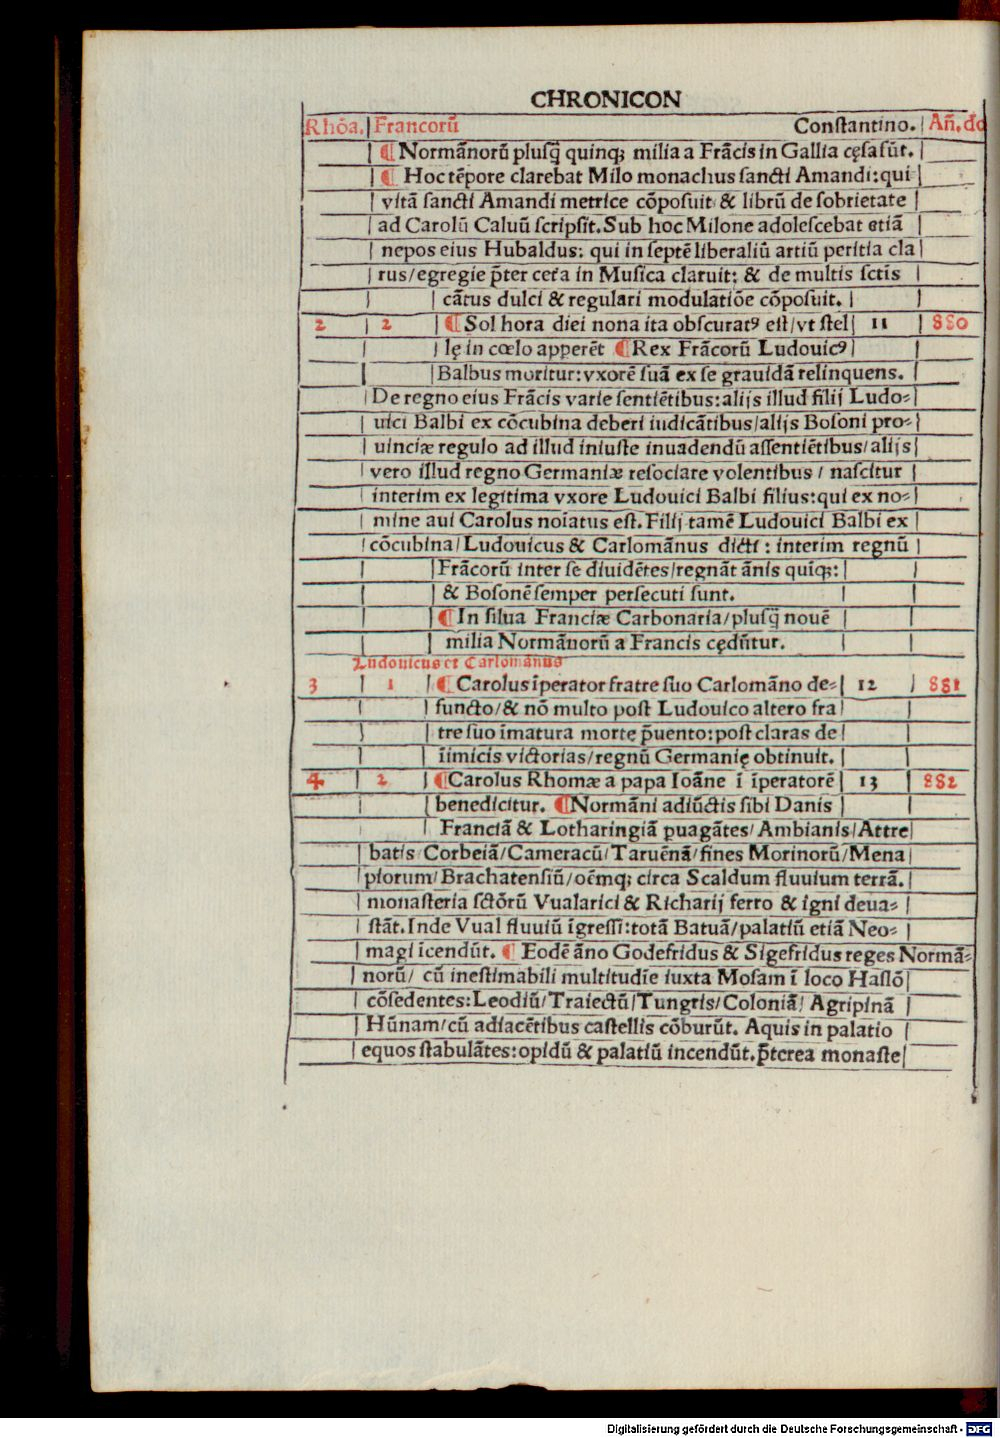 CHRONICON
Rhōa. Francorū Constantino. Añ. do
¶ Normānorū plusq̄ quinq; milia a Frācis in Gallia cęsa sūt.
¶ Hoc tēpore clarebat Milo monachus sancti Amandi: qui
vitā sancti Amandi metrice cōposuit & librū de sobrietate
ad Carolū Caluū scripsit. Sub hoc Milone adolescebat etiā
nepos eius Hubaldus: qui in septē liberaliū artiū peritia cla
rus/ egregie p̄ter ceťa in Musica claruit: & de multis sctis
cātus dulci & regulari modulatiōe cōposuit.
2 2 ¶ Sol hora diei nona ita obscuratꝰ est/ vt stel 11 880
lę in cœlo apperēt ¶ Rex Frācorū Ludouicꝰ
Balbus moritur: vxorē suā ex se grauidā relinquens.
De regno eius Frācis varie sentiētibus: alijs illud filij Ludo-
uici Balbi ex cōcubina deberi iudicātibus/ alijs Bosoni pro-
uinciæ regulo ad illud iniuste inuadendū assentiētibus/ alijs
vero illud regno Germaniæ resociare volentibus / nascitur
interim ex legitima vxore Ludouici Balbi filius: qui ex no-
mine aui Carolus noīatus est. Filij tamē Ludouici Balbi ex
cōcubina/ Ludouicus & Carlomānus dicti : interim regnū
Frācorū inter se diuidētes/ regnāt ānis quiq;:
& Bosonē semper persecuti sunt.
¶ In silua Franciæ Carbonaria/ plusq̄ nouē
milia Normānorū a Francis cędūtur.
Ludouicus et Carlomānus
3 1 ¶ Carolus īperator fratre suo Carlomāno de- 12 881
functo/ & nō multo post Ludouico altero fra
tre suo īmatura morte p̄uento: post claras de
īimicis victorias/ regnū Germanię obtinuit.
4 2 ¶ Carolus Rhomæ a papa Ioāne ī īperatorē 13 882
benedicitur. ¶ Normāni adiūctis sibi Danis
Franciā & Lotharingiā puagātes/ Ambianis/ Attre
batis Corbeiā/ Cameracū/ Taruēnā/ fines Morinorū/ Mena
piorum/ Brachatensiū/ oēmq; circa Scaldum fluuium terrā.
monasteria sctōrū Vualarici & Richarij ferro & igni deua-
stāt. Inde Vual fluuiū īgressi: totā Batuā/ palatiū etiā Neo-
magi īcendūt. ¶ Eodē āno Godefridus & Sigefridus reges Normā-
norū/ cū inestimabili multitudīe iuxta Mosam ī loco Haslō
cōsedentes: Leodiū/ Traiectū/ Tungris/ Coloniā/ Agripinā
Hūnam/ cū adiacētibus castellis cōburūt. Aquis in palatio
equos stabulātes: opidū & palatiū incendūt. p̄terea monaste
Digitalisierung gefördert durch die Deutsche Forschungsgemeinschaft - DFG